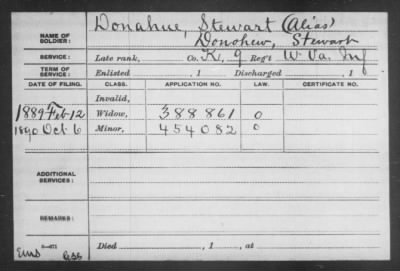 Donahue, Stewart (Alias)
NAME OF SOLDIER: Donohew, Stewart
SERVICE: Late rank, Co. K, 9 Reg't W. Va. Inf
TERM OF SERVICE: Enlisted , 1 Discharged , 1
DATE OF FILING. CLASS. APPLICATION NO. LAW. CERTIFICATE NO.
Invalid,
1889 Feb 12 Widow, 388861 0
1890 Oct 6 Minor, 454082 0
ADDITIONAL SERVICES:
REMARKS:
Died , 1 , at